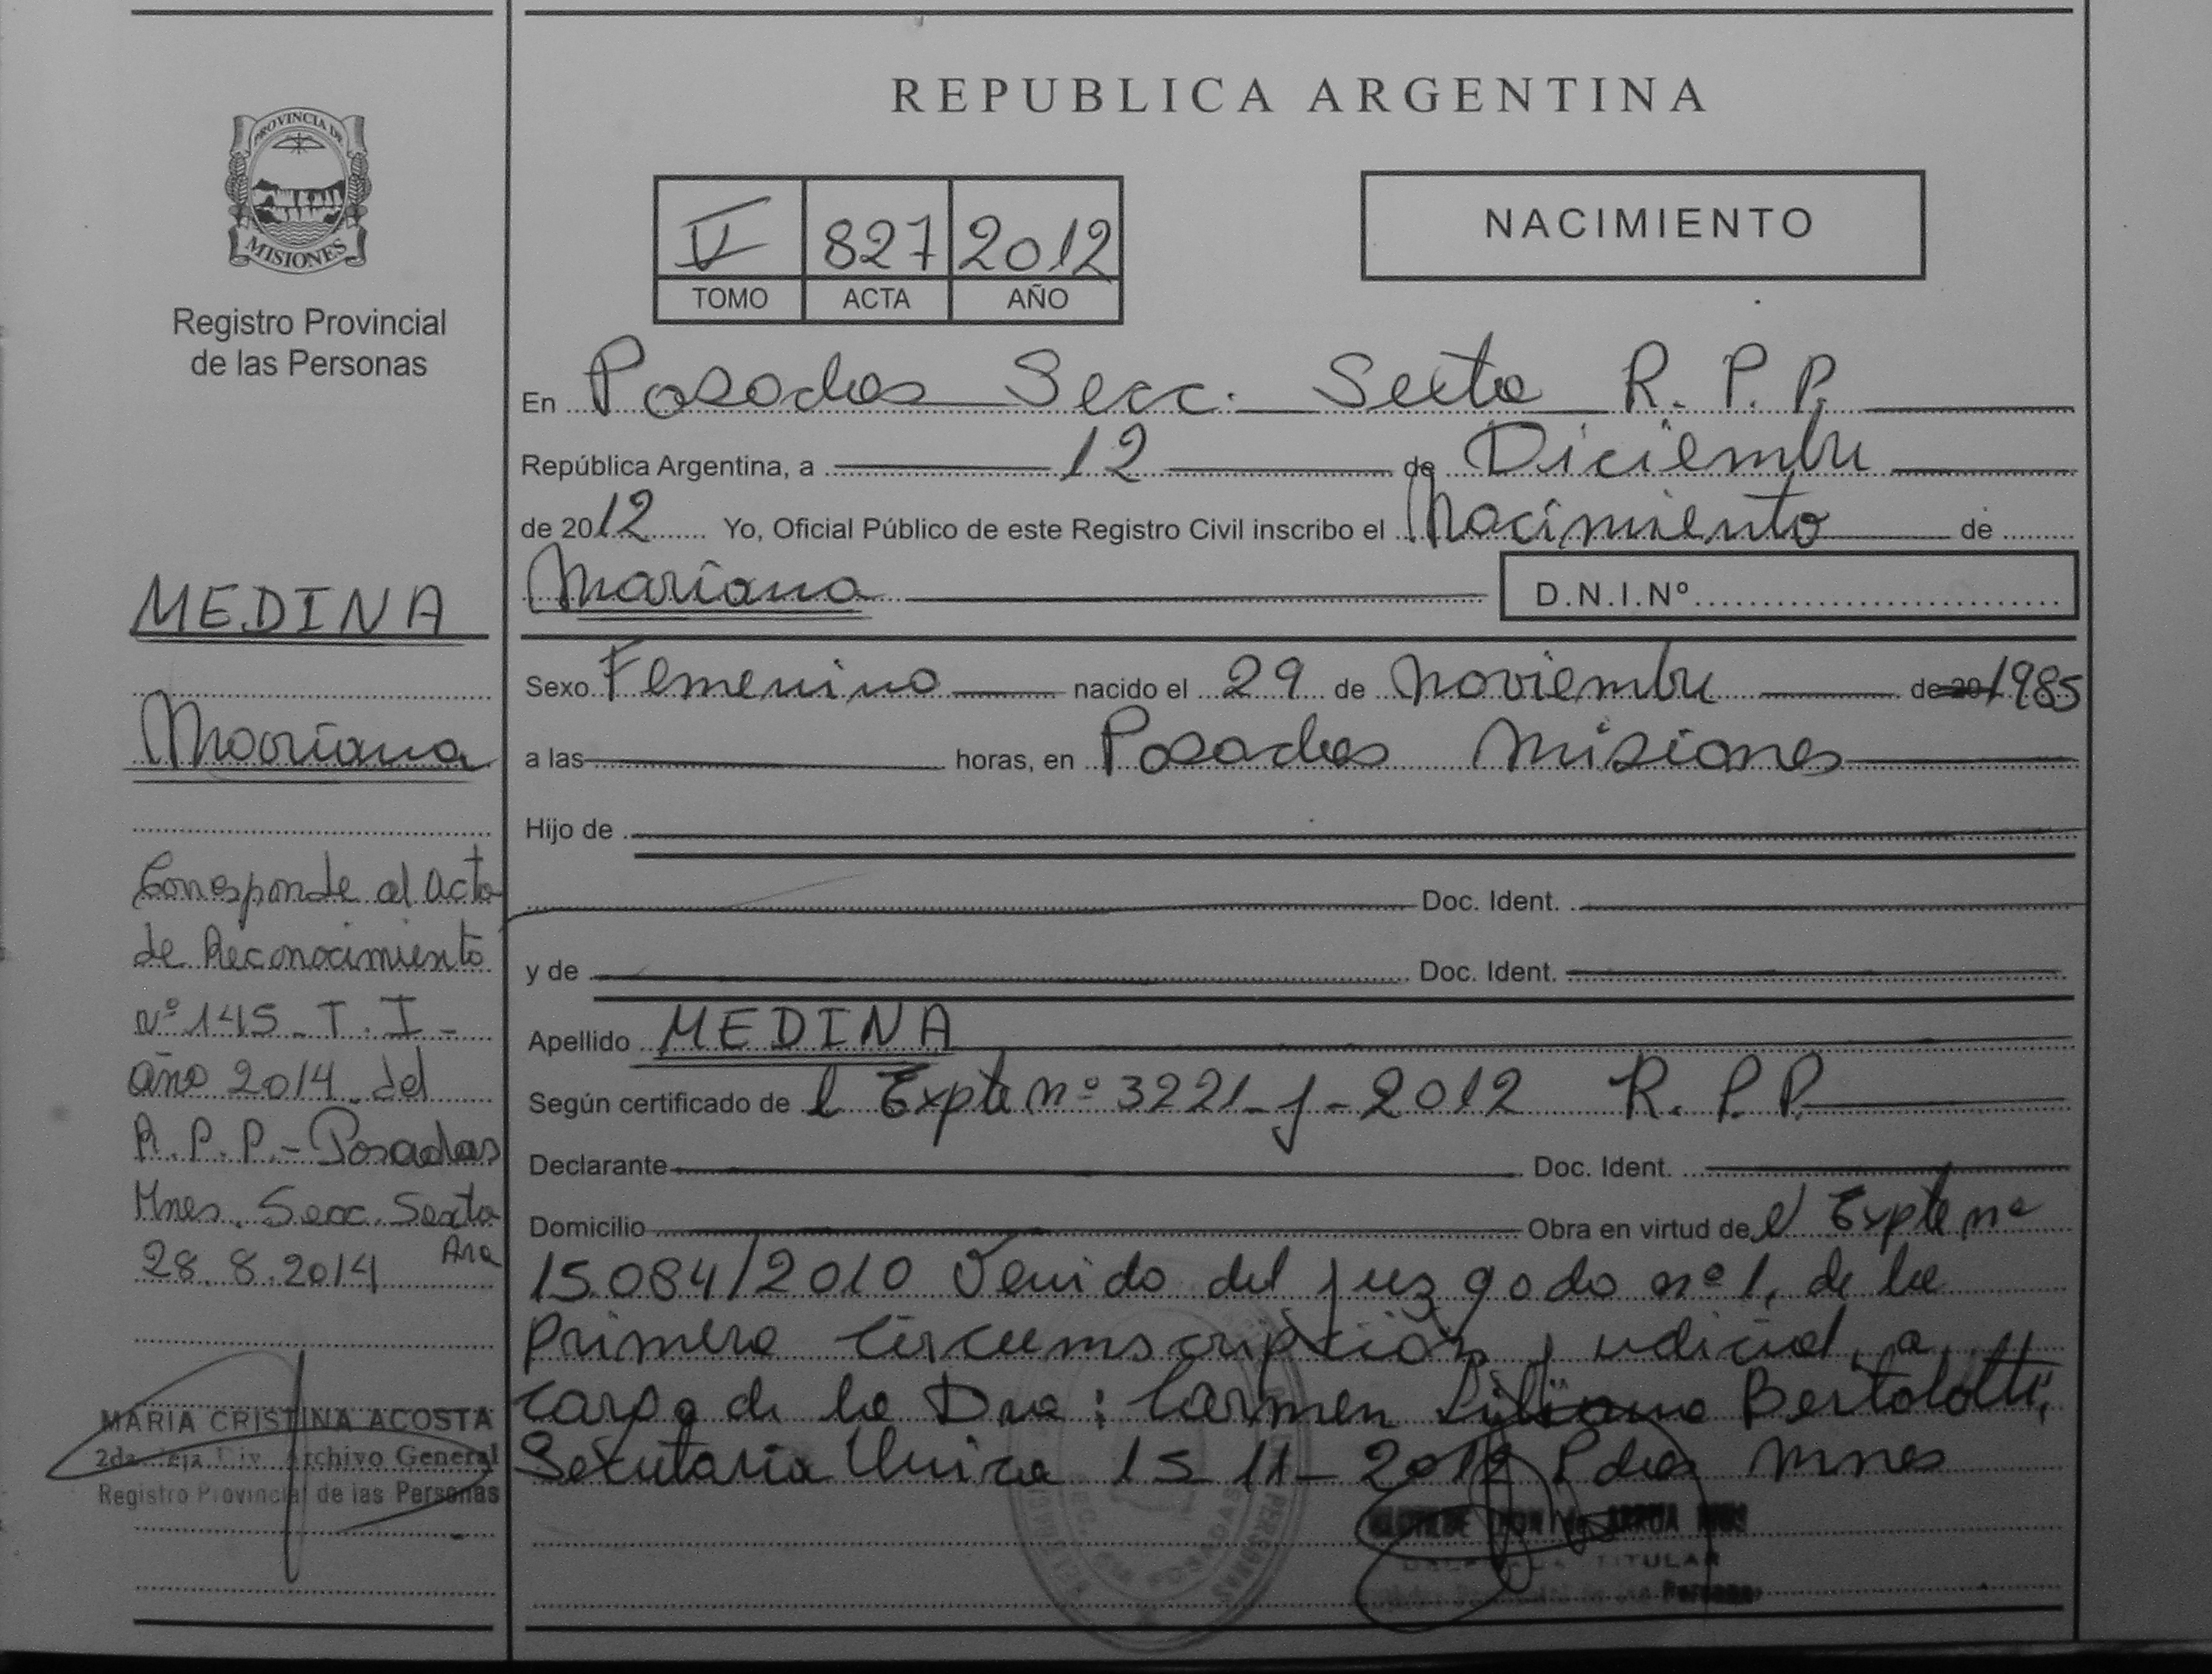 PROVINCIA DE
MISIONES
Registro Provincial
de las Personas
MEDINA
Mariana
Corresponde al acta
de Reconocimiento
Nº 145 - T. I -
año 2014 del
R.P.P. - Posadas
Mnes. Secc. Sexta
28.8.2014
MARIA CRISTINA ACOSTA
2da. Jefa Div. Archivo General
Registro Provincial de las Personas
REPUBLICA ARGENTINA
V 827 2012
TOMO ACTA AÑO
NACIMIENTO
En Posadas Secc. Sexta R. P. P.
República Argentina, a 12 de Diciembre
de 2012 Yo, Oficial Público de este Registro Civil inscribo el Nacimiento de
Mariana D.N.I.Nº
Sexo Femenino nacido el 29 de Noviembre de 20 1985
a las horas, en Posadas Misiones
Hijo de
Doc. Ident.
y de Doc. Ident.
Apellido MEDINA
Según certificado de l Expte nº 3221-J-2012 R. P. P.
Declarante Doc. Ident.
Domicilio Obra en virtud de el Expte nº
15.084/2010 Venido del juzgado nº 1, de la
Primera Circumscripción judicial, a
cargo de la Dra: Carmen Liliana Bertolotti,
Secretaria Unica 15-11-2012 Pdas Mnes
TITULAR